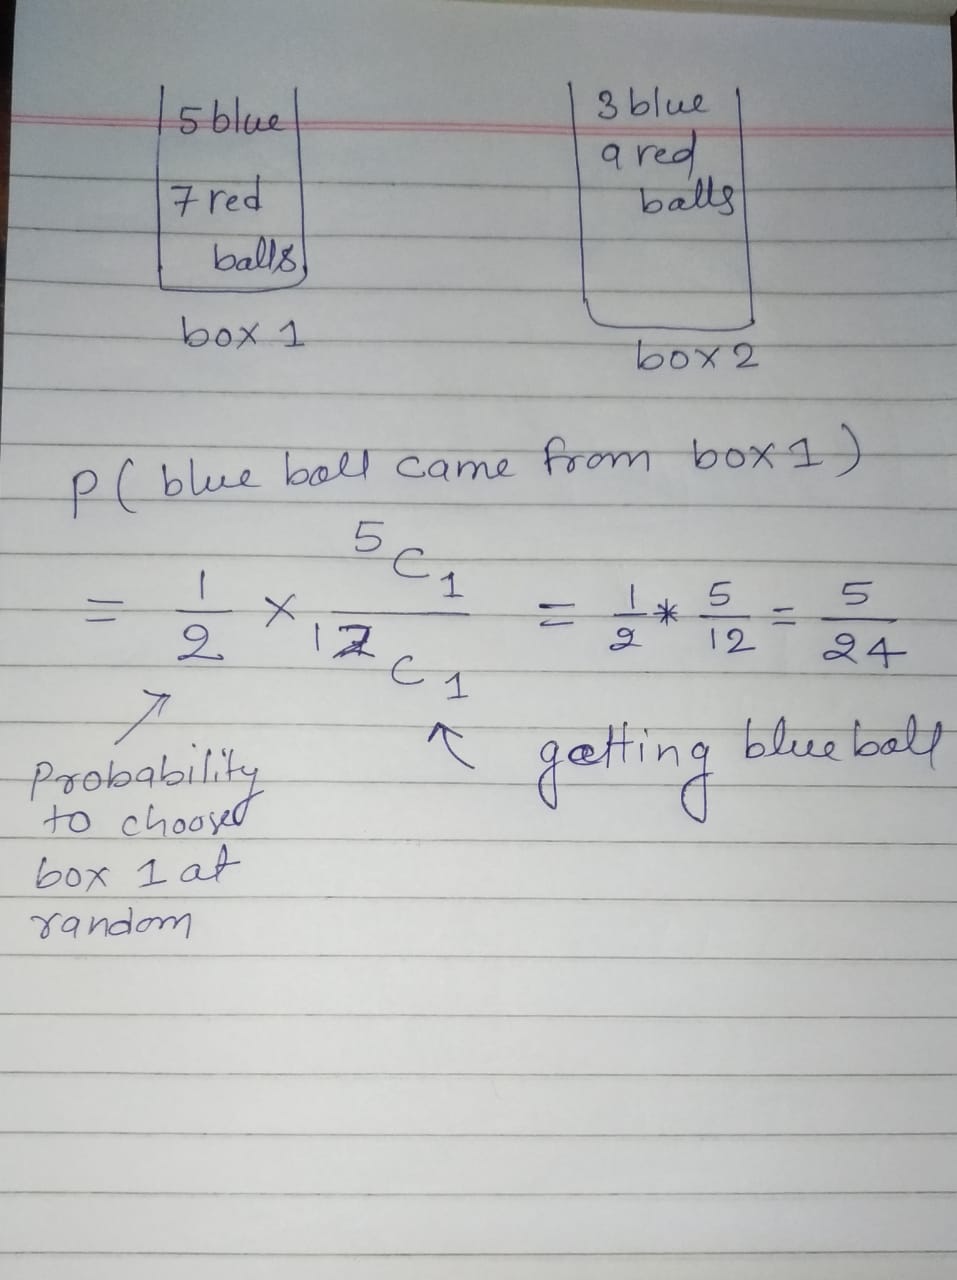 5 blue
7 red
balls
box 1
3 blue
9 red
balls
box 2
P ( blue ball came from box 1 )
= 1/2 × ⁵C₁/¹²C₁ = 1/2 * 5/12 = 5/24
Probability
to choosed
box 1 at
random
getting blue ball